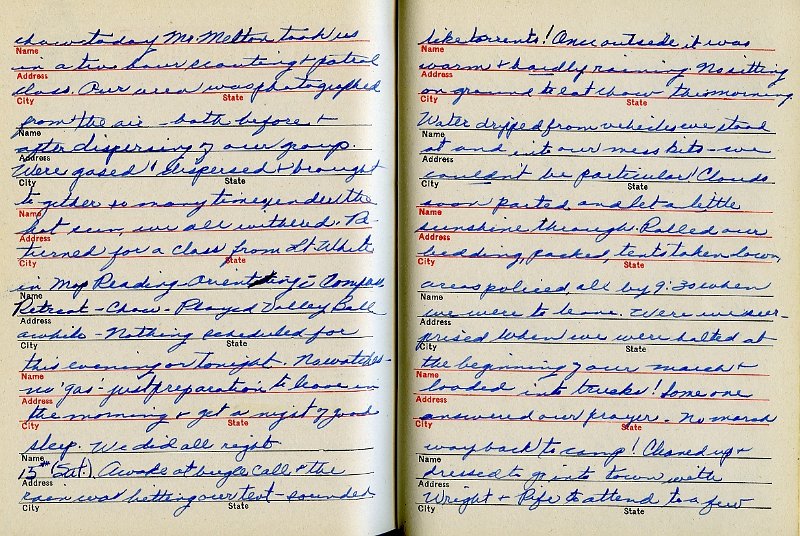 chow today Mr. Melton took us
Name
in a two hour scouting & patrol
Address
class. Our area was photographed
City State
from the air - both before &
Name
after dispersing of our group.
Address
Were gased! Dispersed & brought
City State
together so many times under the
Name
hot sun, we all withered. Re-
Address
turned for a class from Lt. White
City State
in Map Reading - Orienting - Compass
Name
Retreat - Chow - Played Volley Ball
Address
awhile - Nothing scheduled for
City State
this evening or tonight. No watches -
Name
no 'gas' - just preparation to leave in
Address
the morning & get a night of good
City State
sleep. We did all right
Name
15th (Sat). Awoke at bugle call & the
Address
rain was hitting our tent - sounded
City State
like torrents! Once outside it was
Name
warm & hardly raining. No sitting
Address
on ground to eat chow this morning.
City State
Water dripped from vehicles we stood
Name
at and into our mess kits - we
Address
couldn't be particular! Clouds
City State
soon parted and let a little
Name
sunshine through. Rolled our
Address
bedding, packed, tents taken down,
City State
areas policed, all by 9:30 when
Name
we were to leave. Were we sur-
Address
prised when we were halted at
City State
the beginning of our march &
Name
loaded into trucks! Someone
Address
answered our prayer. No march
City State
way back to camp! Cleaned up &
Name
dressed to go into town with
Address
Wright & Pife to attend to a few
City State